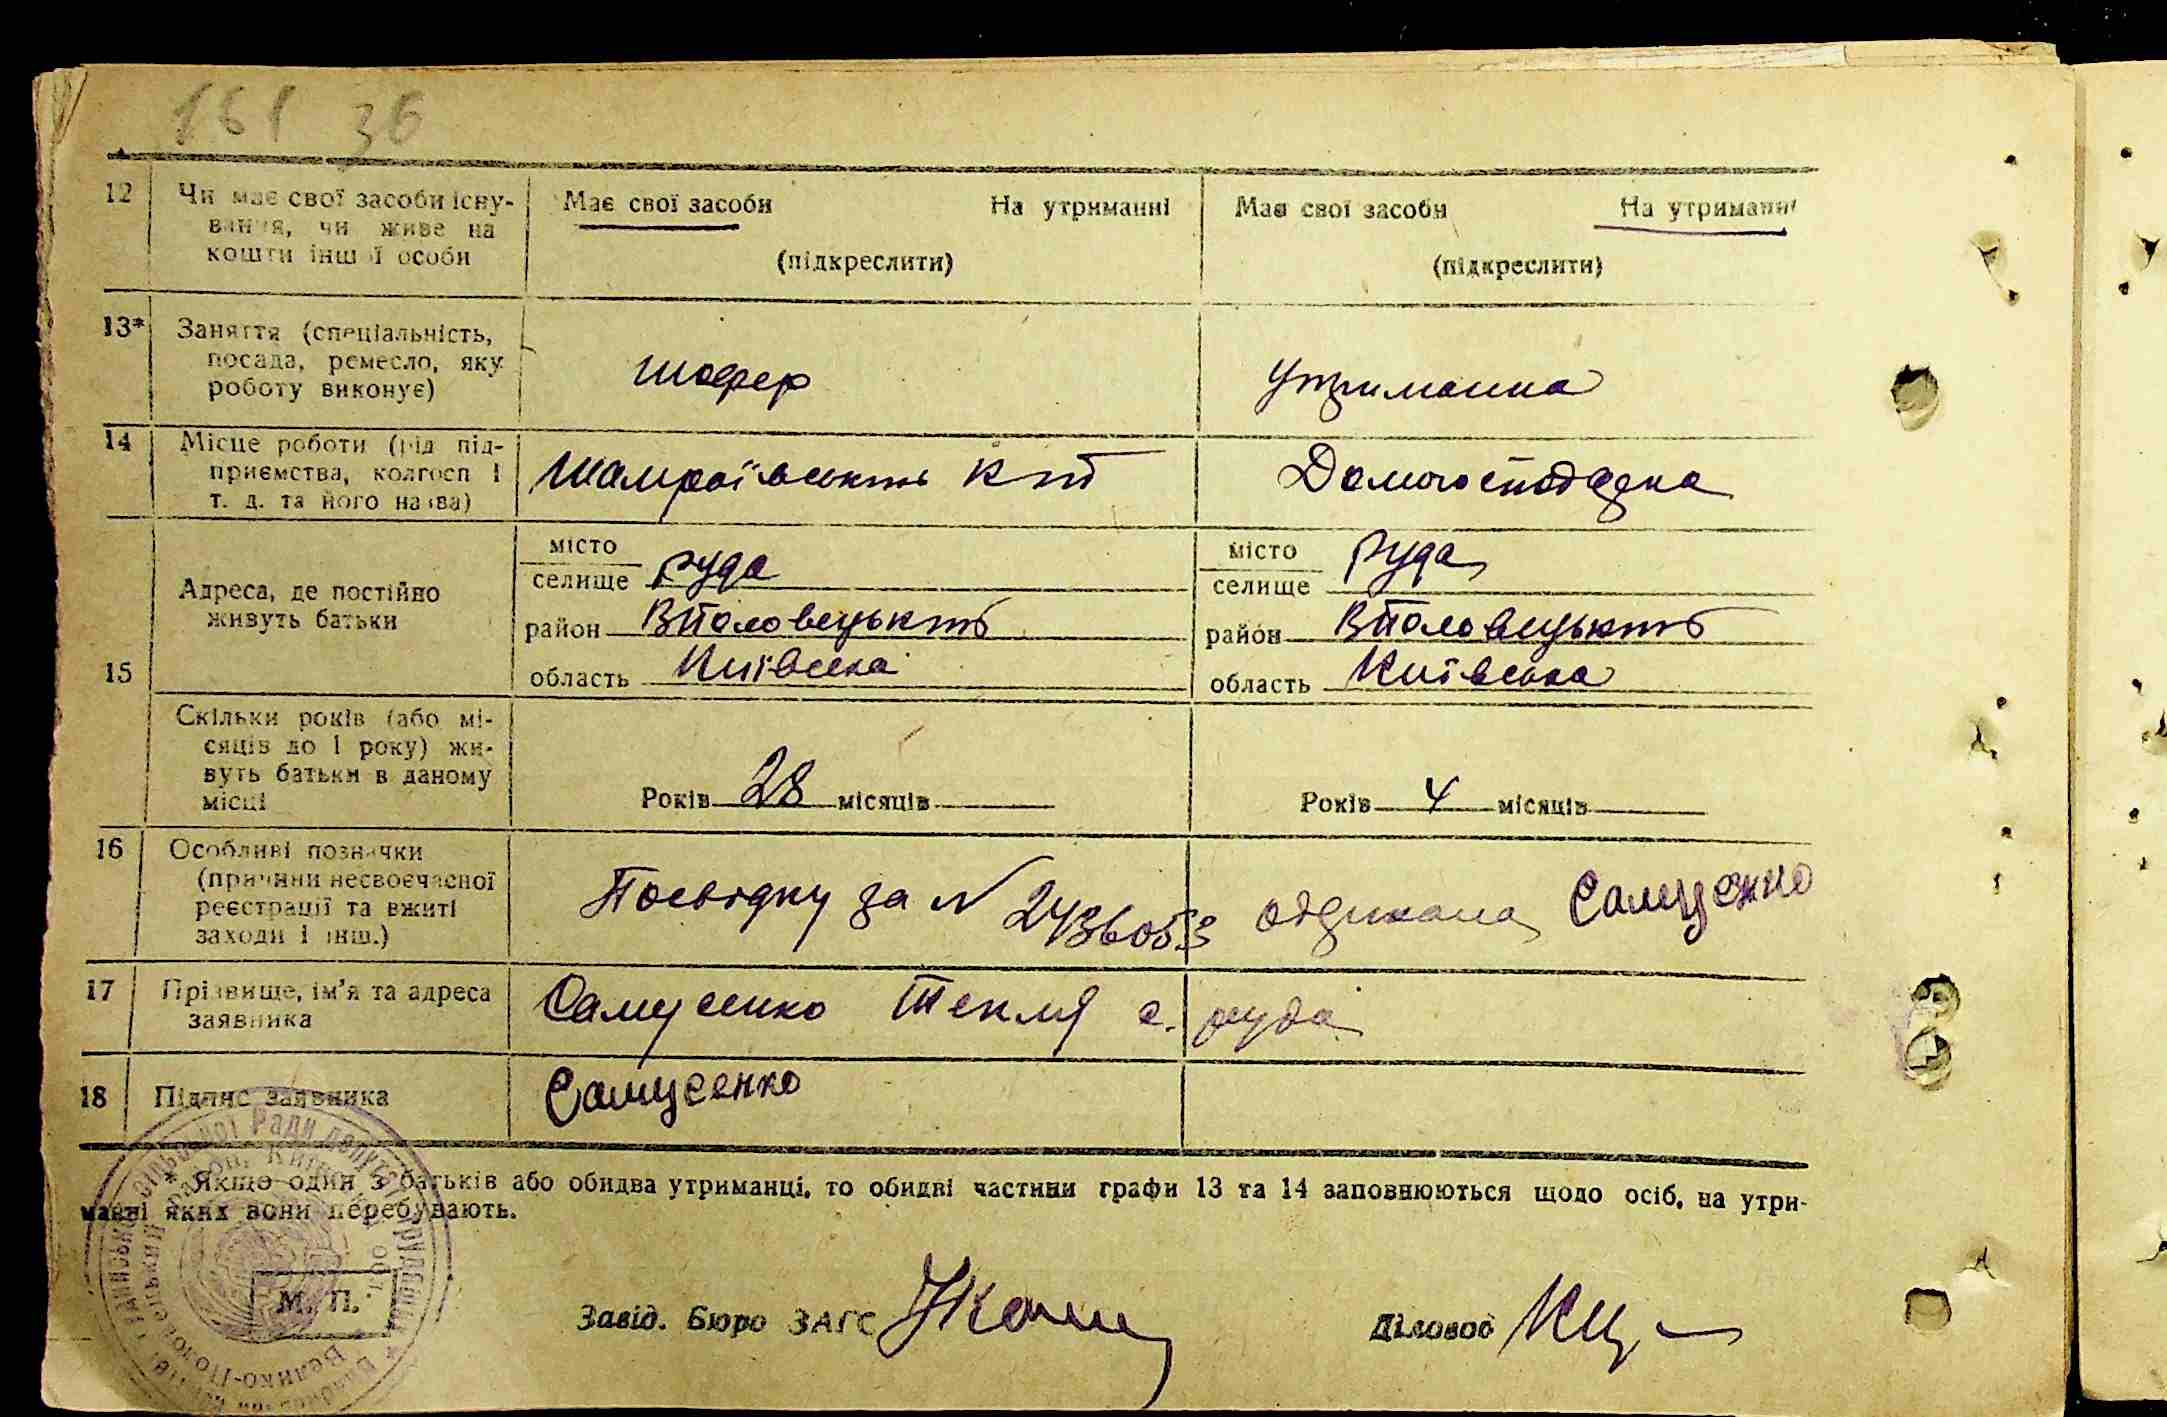 161 36
12 Чи має свої засоби існу- Має свої засоби На утриманні Має свої засоби На утриманні
вання, чи живе на
кошти іншої особи (підкреслити) (підкреслити)
13* Заняття (спеціальність,
посада, ремесло, яку шофер утриманка
роботу виконує)
14 Місце роботи (рід під-
приємства, колгосп і Шамраївський Домогосподарка
т. д. та його назва)
місто місто
селище Руда селище Руда
Адреса, де постійно
живуть батьки район ВПоловецький район ВПоловецький
15 область Київська область Київська
Скільки років (або мі-
сяців до 1 року) жи-
вуть батьки в даному Років 28 місяців Років 4 місяців
місці
16 Особливі позначки
(причини несвоєчасної Посвідку за № 2436053 одержала Самусенко
реєстрації та вжиті
заходи і інш.)
17 Прізвище, ім'я та адреса Самусенко Текля с. Руда
заявника
18 Підпис заявника Самусенко
* Якщо один з батьків або обидва утриманці, то обидві частини графи 13 та 14 заповнюються щодо осіб, на утри-
манні яких вони перебувають.
М. П.
Завід. Бюро ЗАГС Діловод